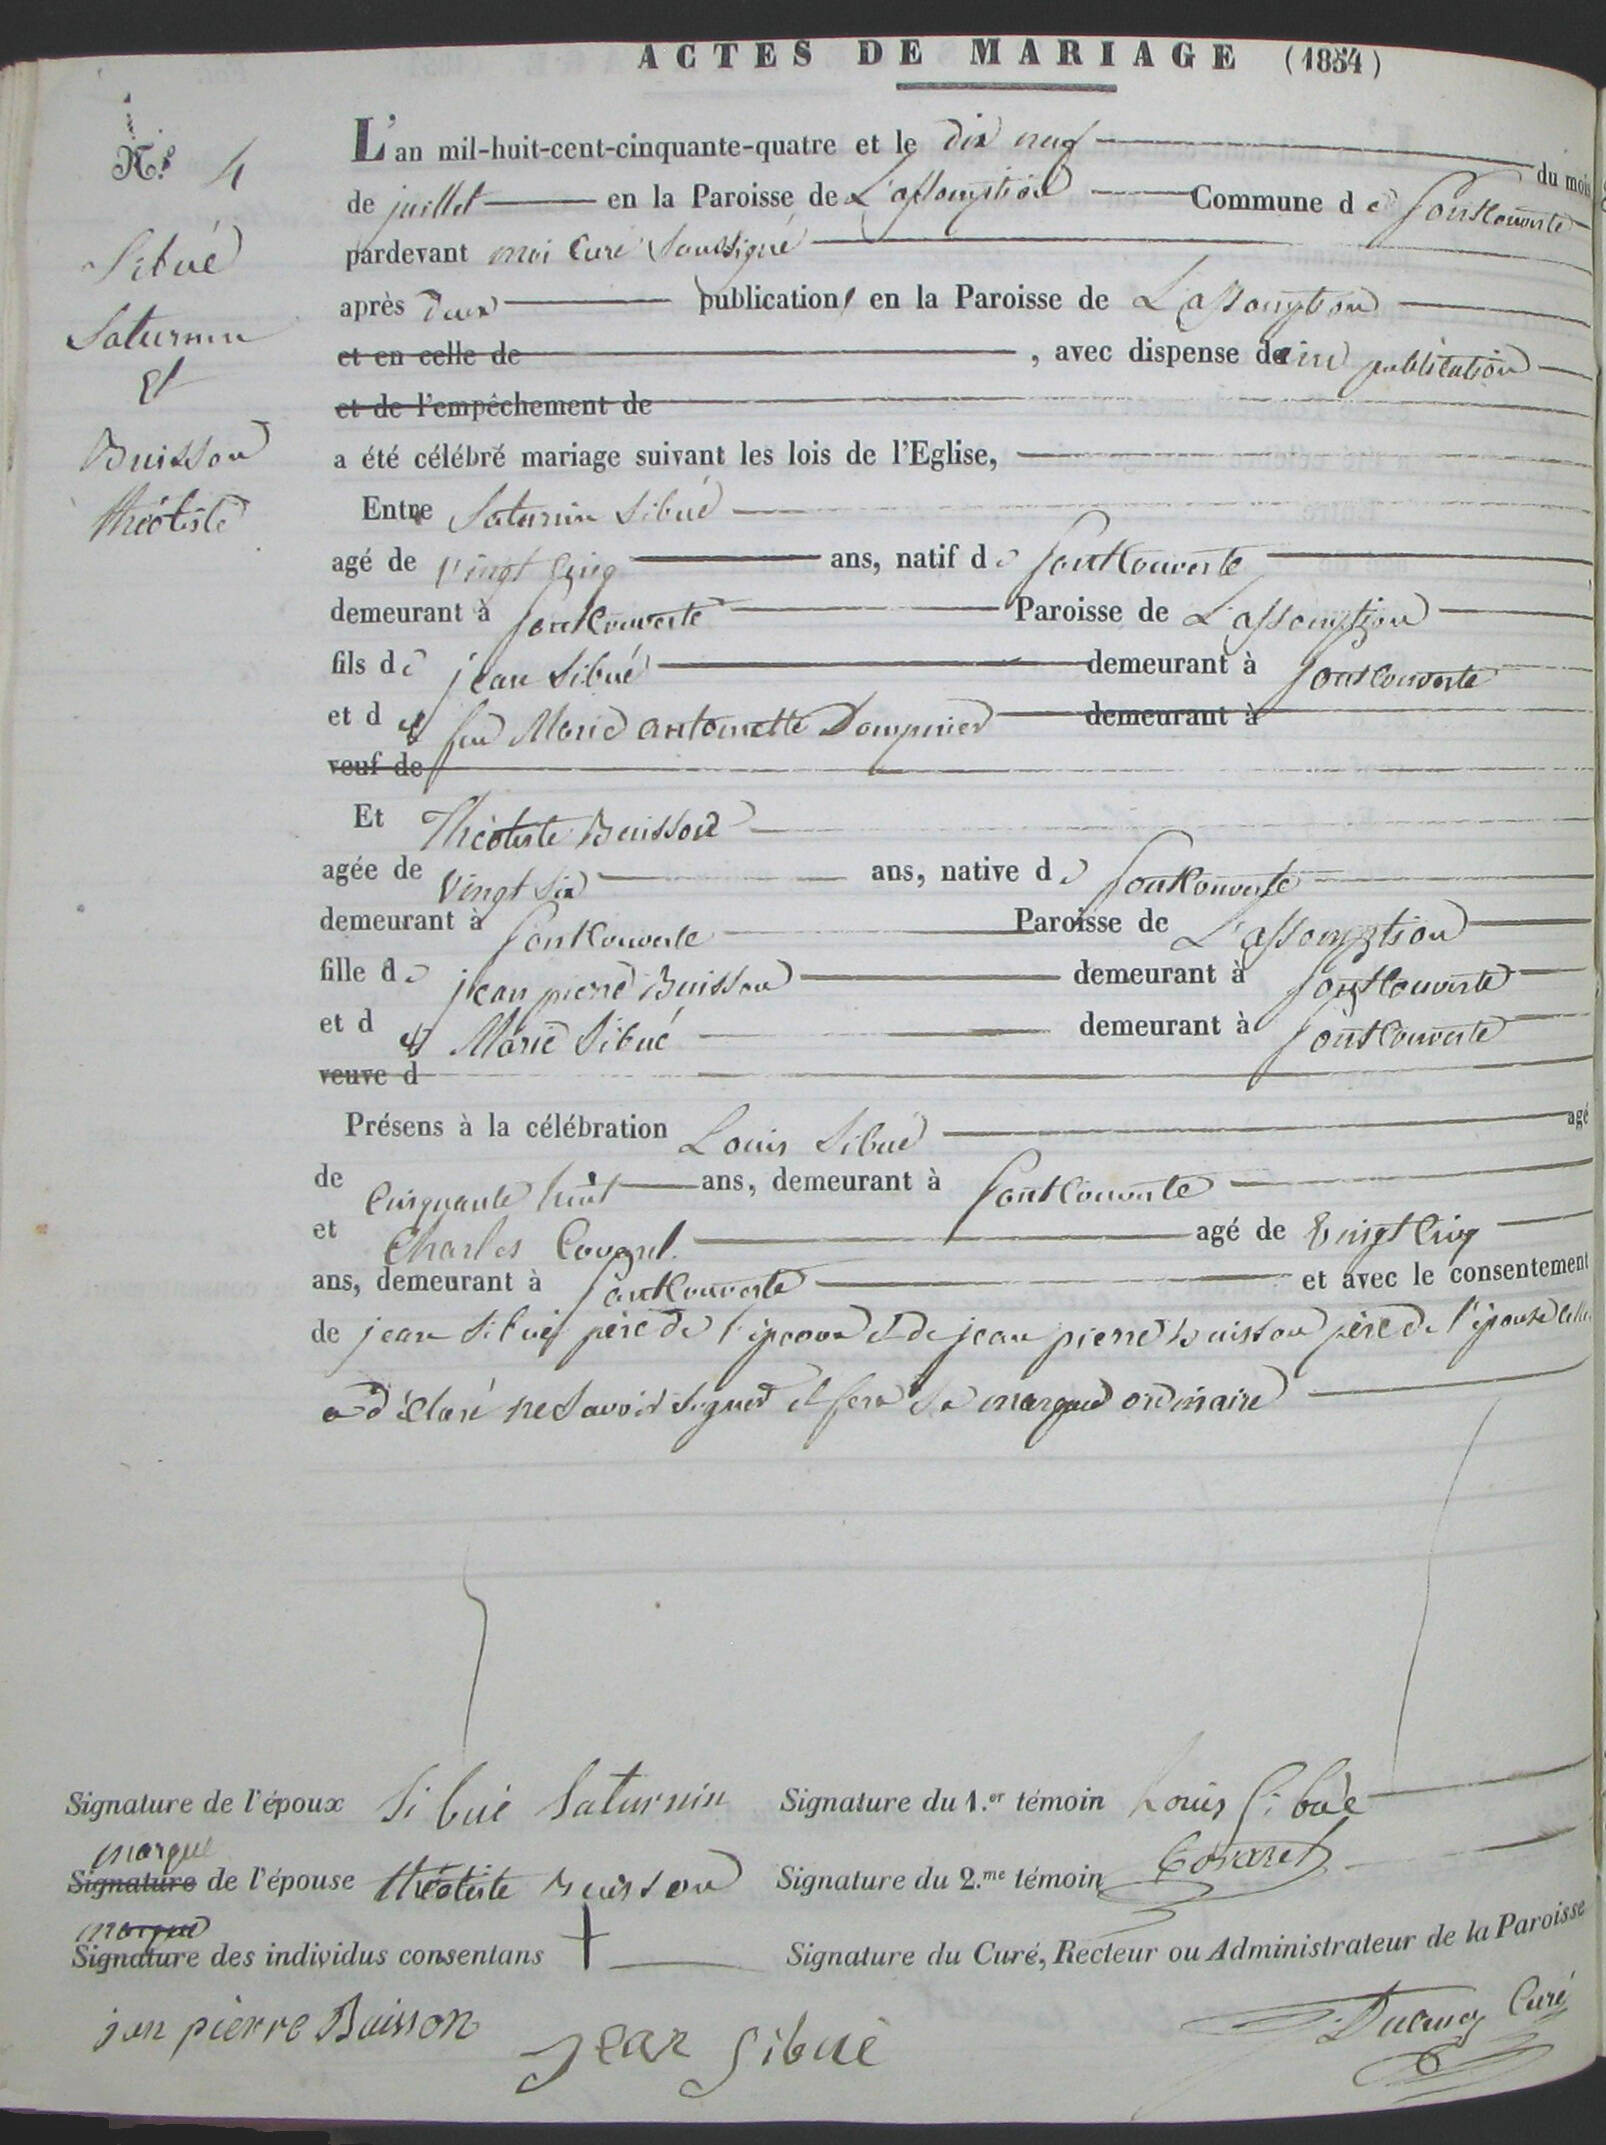 ACTES DE MARIAGE (1854)
N.º 4
Sibué
Saturnin
et
Buisson
théotiste
L'an mil-huit-cent-cinquante-quatre et le dix neuf du mois
de juillet en la Paroisse de L'assomption Commune de fontcouverte
pardevant moi Curé Soussigné
après deux publication, en la Paroisse de L'assomption
et en celle de , avec dispense de publication
et de l'empêchement de
a été célébré mariage suivant les lois de l'Eglise,
Entre Saturnin Sibué
agé de vingt cinq ans, natif de fontcouverte
demeurant à fontcouverte Paroisse de L'assomption
fils de jean Sibué demeurant à fontcouverte
et d feu Marie antoinette Dompnier demeurant à
veuf de
Et Théotiste Buisson
agée de vingt six ans, native de fontcouverte
demeurant à fontcouverte Paroisse de L'assomption
fille de jean pierre Buisson demeurant à fontcouverte
et d Marie Sibué demeurant à fontcouverte
veuve d
Présens à la célébration Louis Sibué agé
de cinquante huit ans, demeurant à fontcouverte
et Charles Covarel agé de vingt cinq
ans, demeurant à fontcouverte et avec le consentement
de jean Sibué père de l'époux et de jean pierre buisson père de l'épouse celle
a déclaré ne savoir signer et fera sa marque ordinaire
Signature de l'époux Sibué Saturnin Signature du 1.er témoin Louis Sibué
marque
Signature de l'épouse théotiste Buisson Signature du 2.me témoin Covarel
marque
Signature des individus consentans + Signature du Curé, Recteur ou Administrateur de la Paroisse
jan pierre Buisson jean Sibué Curé